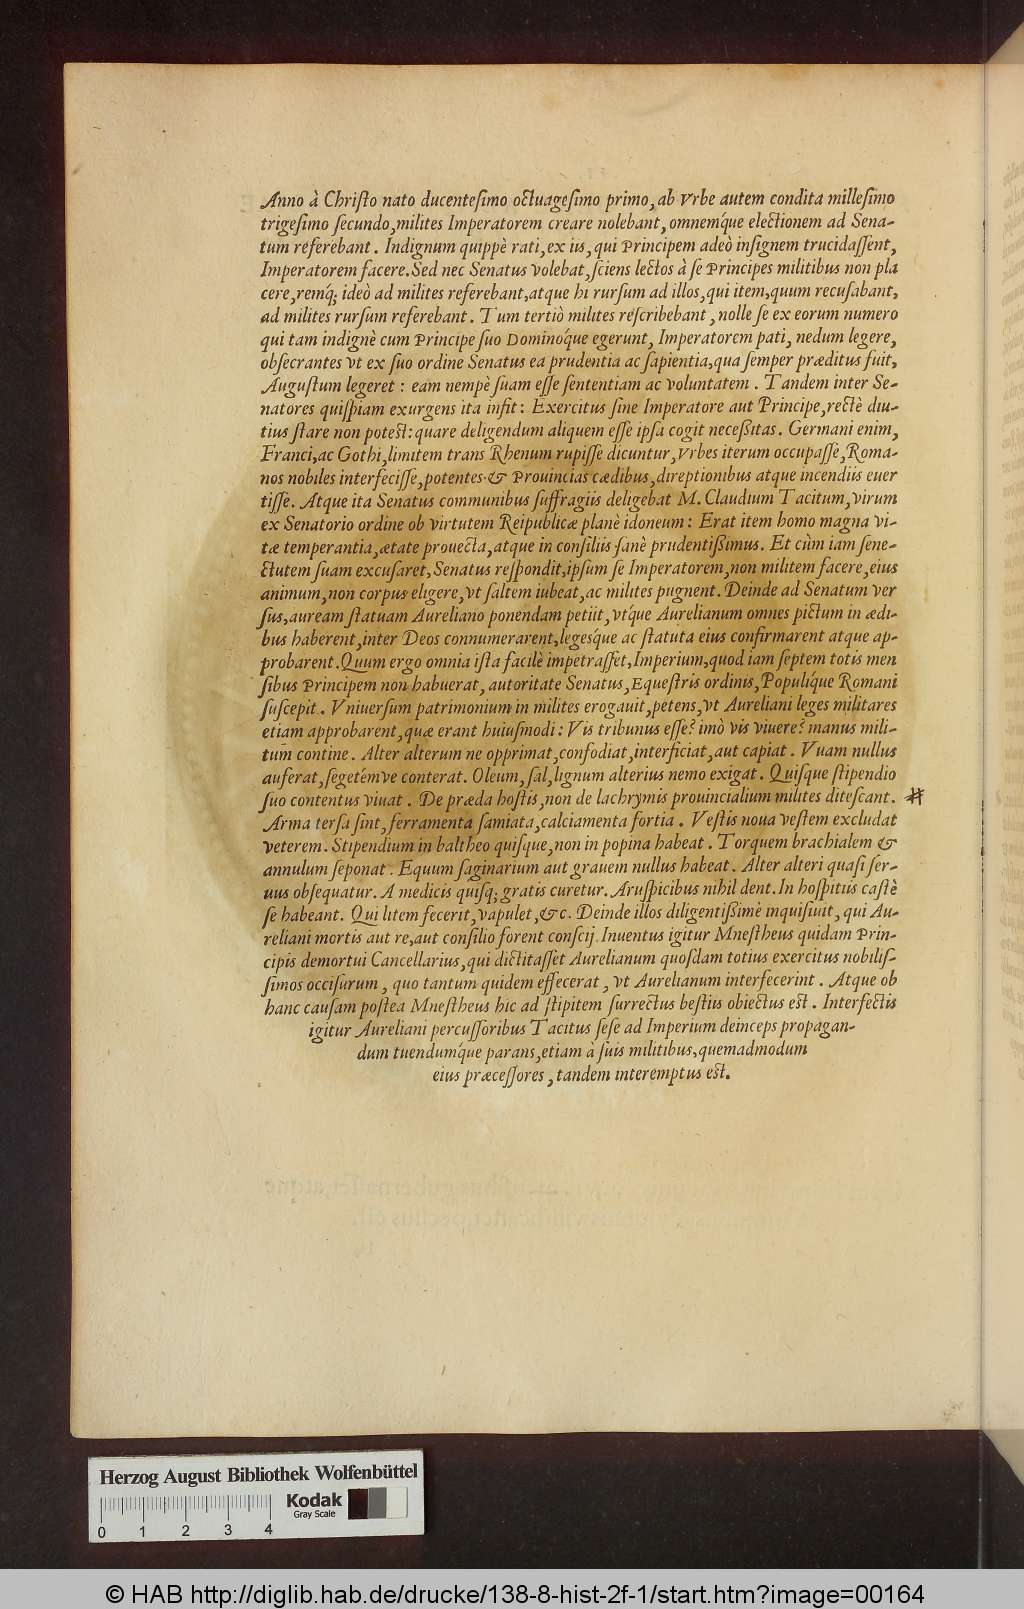 Anno à Chriſto nato ducenteſimo octuageſimo primo, ab Vrbe autem condita milleſimo
trigeſimo ſecundo, milites Imperatorem creare nolebant, omnemq́ue electionem ad Sena-
tum referebant. Indignum quippè rati, ex iis, qui Principem adeò inſignem trucidaſſent,
Imperatorem facere. Sed nec Senatus volebat, ſciens lectos à ſe Principes militibus non pla
cere, remq́; ideò ad milites referebant, atque hi rurſum ad illos, qui item, quum recuſabant,
ad milites rurſum referebant. Tum tertiò milites reſcribebant, nolle ſe ex eorum numero
qui tam indignè cum Principe ſuo Dominoq́ue egerunt, Imperatorem pati, nedum legere,
obſecrantes vt ex ſuo ordine Senatus ea prudentia ac ſapientia, qua ſemper præditus fuit,
Auguſtum legeret: eam nempè ſuam eſſe ſententiam ac voluntatem. Tandem inter Se-
natores quiſpiam exurgens ita infit: Exercitus ſine Imperatore aut Principe, rectè diu-
tius ſtare non poteſt: quare deligendum aliquem eſſe ipſa cogit neceßitas. Germani enim,
Franci, ac Gothi, limitem trans Rhenum rupiſſe dicuntur, Vrbes iterum occupaſſe, Roma-
nos nobiles interfeciſſe, potentes & Prouincias cædibus, direptionibus atque incendiis euer
tiſſe. Atque ita Senatus communibus ſuffragiis deligebat M. Claudium Tacitum, virum
ex Senatorio ordine ob virtutem Reipublicæ planè idoneum: Erat item homo magna vi-
tæ temperantia, ætate prouecta, atque in conſiliis ſanè prudentißimus. Et cùm iam ſene-
ctutem ſuam excuſaret, Senatus reſpondit, ipſum ſe Imperatorem, non militem facere, eius
animum, non corpus eligere, vt ſaltem iubeat, ac milites pugnent. Deinde ad Senatum ver
ſus, auream ſtatuam Aureliano ponendam petiit, vtq́ue Aurelianum omnes pictum in ædi-
bus haberent, inter Deos connumerarent, legesque ac ſtatuta eius confirmarent atque ap-
probarent. Quum ergo omnia iſta facilè impetraſſet, Imperium, quod iam ſeptem totis men
ſibus Principem non habuerat, autoritate Senatus, Equeſtris ordinis, Populiq́ue Romani
ſuſcepit. Vniuerſum patrimonium in milites erogauit, petens, vt Aureliani leges militares
etiam approbarent, quæ erant huiuſmodi: Vis tribunus eſſe? imò vis viuere? manus mili-
tum contine. Alter alterum ne opprimat, confodiat, interficiat, aut capiat. Vuam nullus
auferat, ſegetemve conterat. Oleum, ſal, lignum alterius nemo exigat. Quiſque ſtipendio
ſuo contentus viuat. De præda hoſtis, non de lachrymis prouincialium milites diteſcant. #
Arma terſa ſint, ferramenta ſamiata, calciamenta fortia. Veſtis noua veſtem excludat
veterem. Stipendium in baltheo quiſque, non in popina habeat. Torquem brachialem &
annulum ſeponat. Equum ſaginarium aut grauem nullus habeat. Alter alteri quaſi ſer-
uus obſequatur. A medicis quiſq́; gratis curetur. Aruſpicibus nihil dent. In hoſpitiis caſtè
ſe habeant. Qui litem fecerit, vapulet, &c. Deinde illos diligentißimè inquiſiuit, qui Au-
reliani mortis aut re, aut conſilio forent conſcij. Inuentus igitur Mneſtheus quidam Prin-
cipis demortui Cancellarius, qui dictitaſſet Aurelianum quoſdam totius exercitus nobiliſ-
ſimos occiſurum, quo tantum quidem effecerat, vt Aurelianum interfecerint. Atque ob
hanc cauſam poſtea Mneſtheus hic ad ſtipitem ſurrectus beſtiis obiectus eſt. Interfectis
igitur Aureliani percuſſoribus Tacitus ſeſe ad Imperium deinceps propagan-
dum tuendumq́ue parans, etiam à ſuis militibus, quemadmodum
eius præceſſores, tandem interemptus eſt.
Herzog August Bibliothek Wolfenbüttel
Kodak
Gray Scale
0 1 2 3 4
© HAB http://diglib.hab.de/drucke/138-8-hist-2f-1/start.htm?image=00164